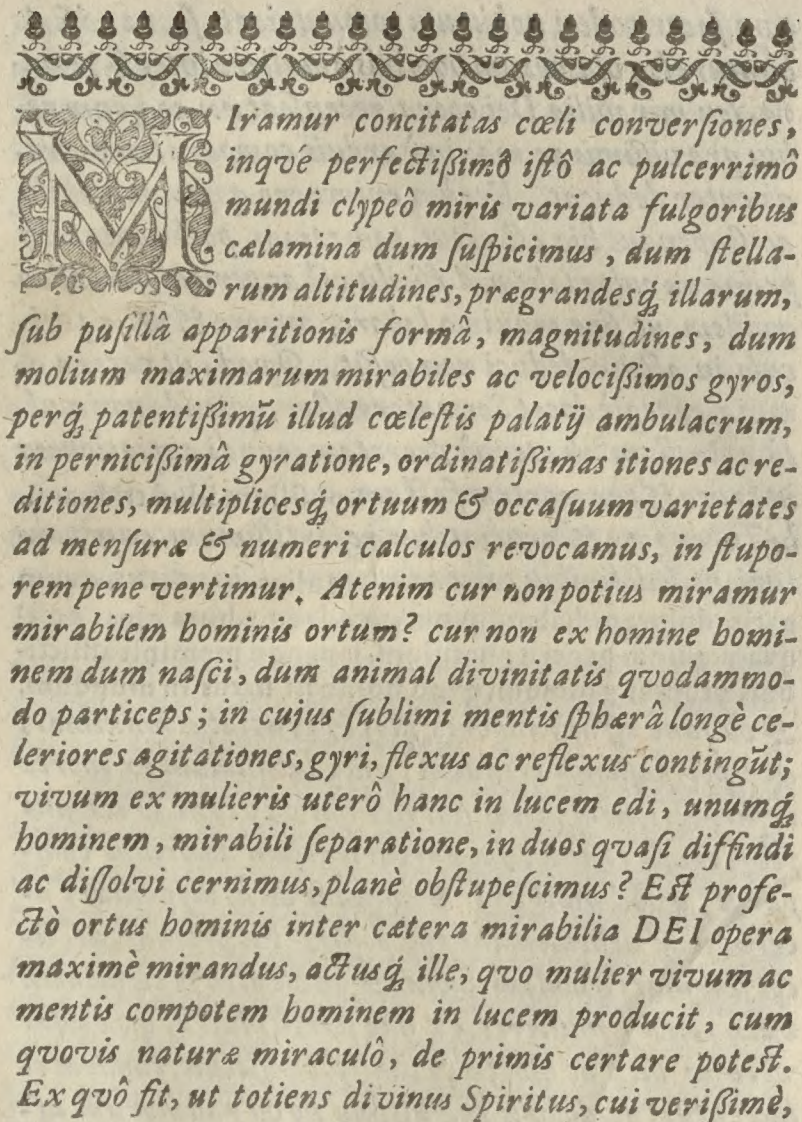 MIramur concitatas cœli converſiones,
inqvé perfectiſſimô iſtô ac pulcerrimô
mundi clypeô miris variata fulgoribus
cælamina dum ſuſpicimus, dum ſtella-
rum altitudines, prægrandesq́; illarum,
ſub puſillâ apparitionis formâ, magnitudines, dum
molium maximarum mirabiles ac velociſſimos gyros,
perq́; patentiſſimũ illud cœleſtis palatij ambulacrum,
in perniciſſimâ gyratione, ordinatiſſimas itiones ac re-
ditiones, multiplicesq́; ortuum & occaſuum varietates
ad menſuræ & numeri calculos revocamus, in ſtupo-
rem pene vertimur. Atenim cur non potius miramur
mirabilem hominis ortum? cur non ex homine homi-
nem dum naſci, dum animal divinitatis qvodammo-
do particeps; in cujus ſublimi mentis ſphærâ longè ce-
leriores agitationes, gyri, flexus ac reflexus contingũt;
vivum ex mulieris uterô hanc in lucem edi, unumq́;
hominem, mirabili ſeparatione, in duos qvaſi diffindi
ac diſſolvi cernimus, planè obſtupeſcimus? Eſt profe-
ctò ortus hominis inter cætera mirabilia DEI opera
maximè mirandus, actusq́; ille, qvo mulier vivum ac
mentis compotem hominem in lucem producit, cum
qvovis naturæ miraculô, de primis certare poteſt.
Ex qvô fit, ut totiens divinus Spiritus, cui veriſſimè,